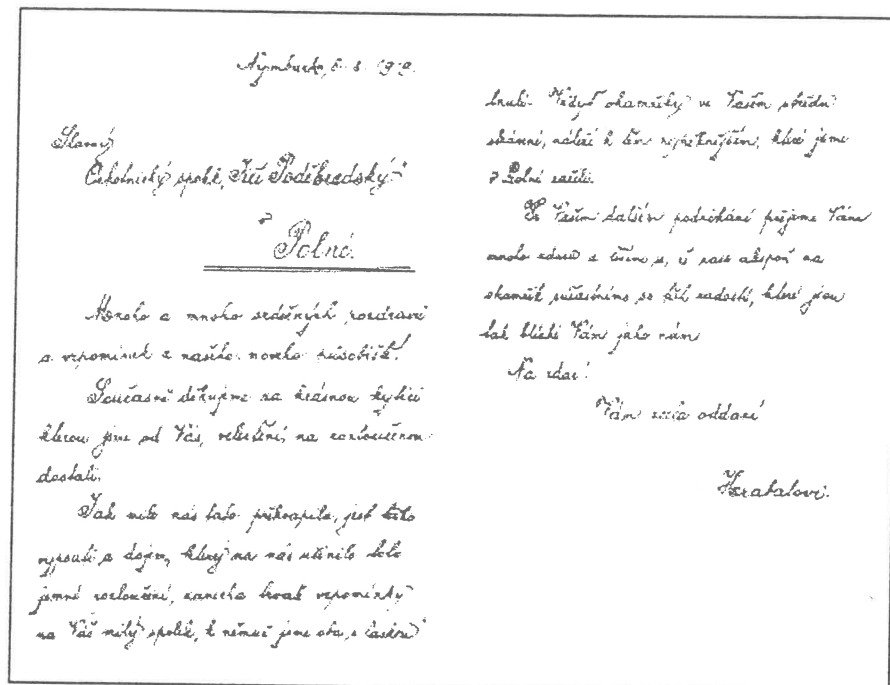 Nymburk, 6. 8. 1919.
Slavný
Ochotnický spolek, Jiří Poděbradský"
v
Polné.
Mnoho a mnoho srdečných pozdravů
a vzpomínek z našeho nového působiště!
Současně děkujeme za krásnou kytici
kterou jsme od Vás, velectění, na rozloučenou
dostali.
Jak milo nás tato překvapila, jest těžko
vypsati a dojem, který na nás učinilo toto
jemné rozloučení, zanechá trvalé vzpomínky
na Váš milý spolek, k němuž jsme oba, s láskou
lnuli. Vždyť okamžiky ve Vašem středu
strávené, náleží k těm nejpěknějším, které jsme
v Polné zažili.
Ve Vašem dalším podnikání přejeme Vám
mnoho zdaru a těšíme se, že zase alespoň na
okamžik súčastníme se těch radostí, které jsou
tak blízké Vám jako nám
Na zdar!
Vám zcela oddaní
Hrabalovi.